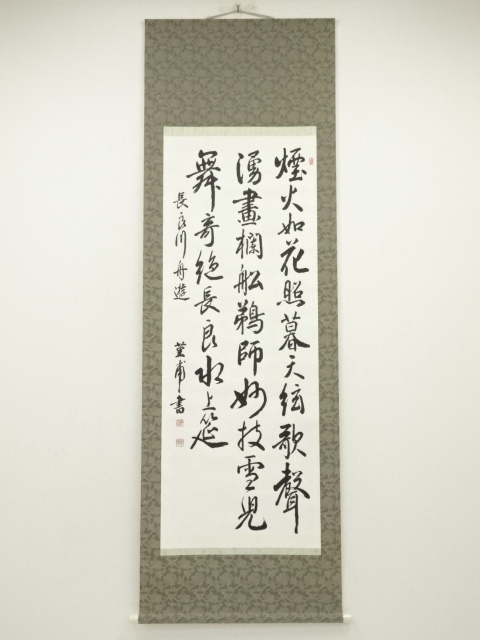 煙火如花照暮天絃歌聲
湧畫欄船鵜師妙技雪児
舞奇絶長良水上筵
長良川舟遊
甫書